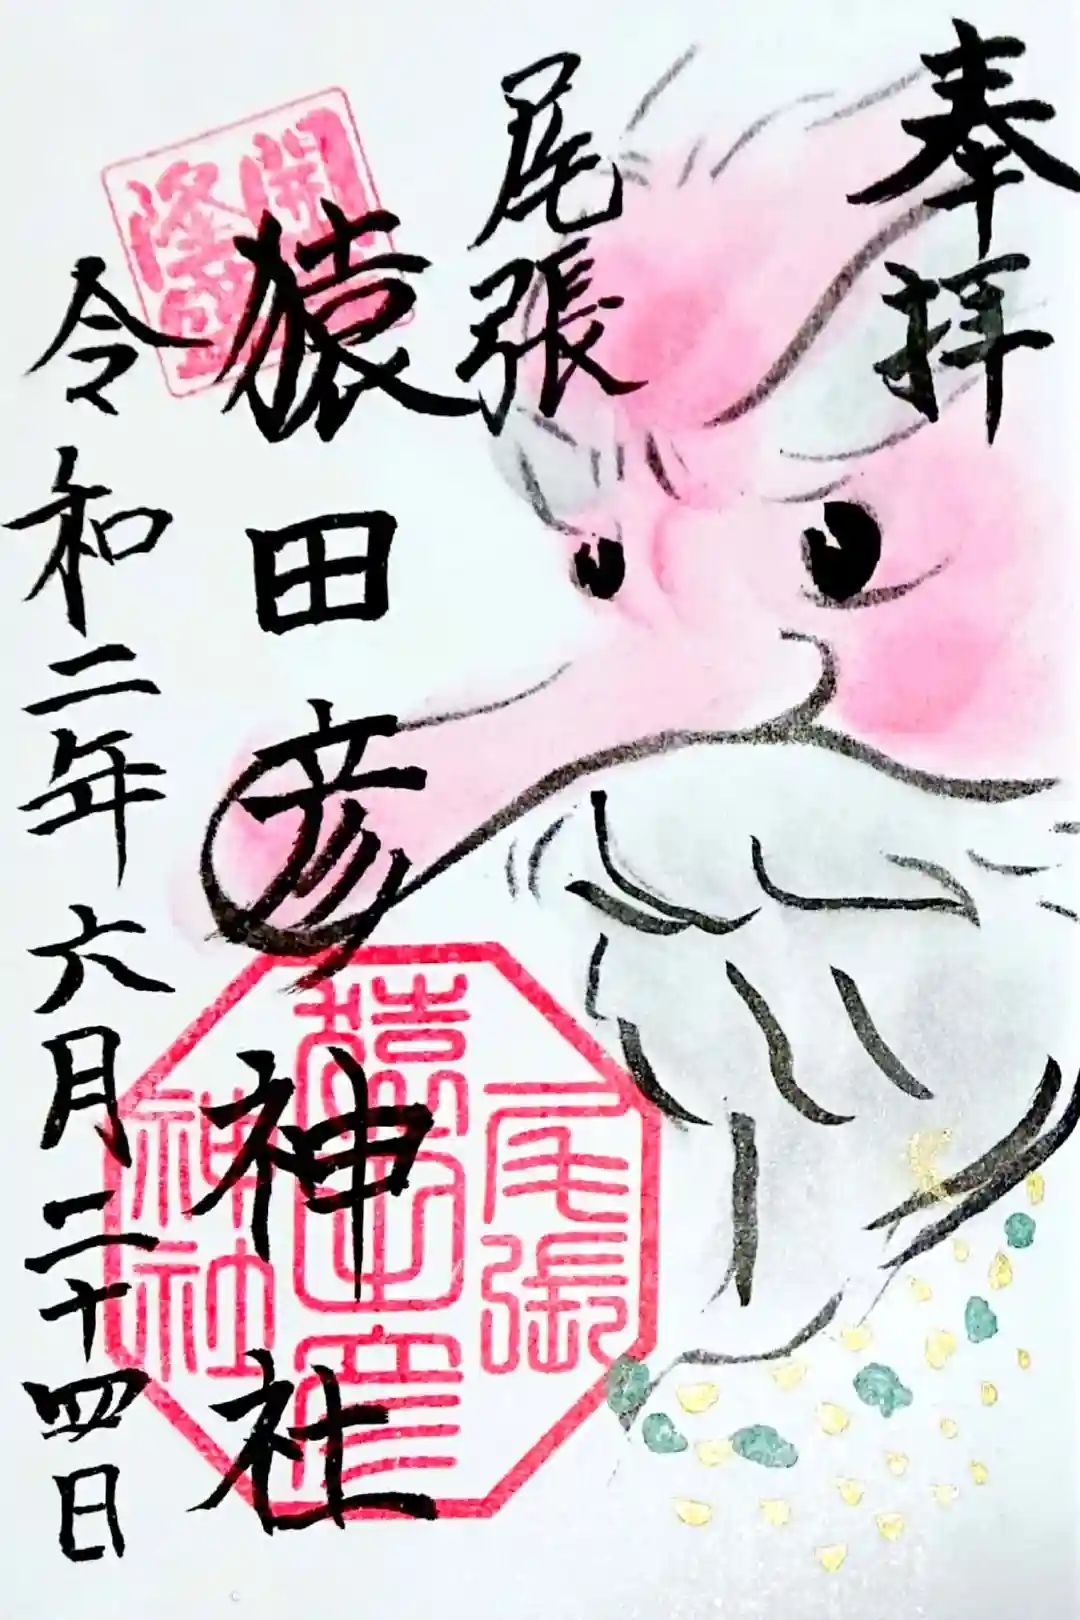 奉拝
尾張
猿田彦神社
令和二年六月二十四日
尾張
猿田彦
神社